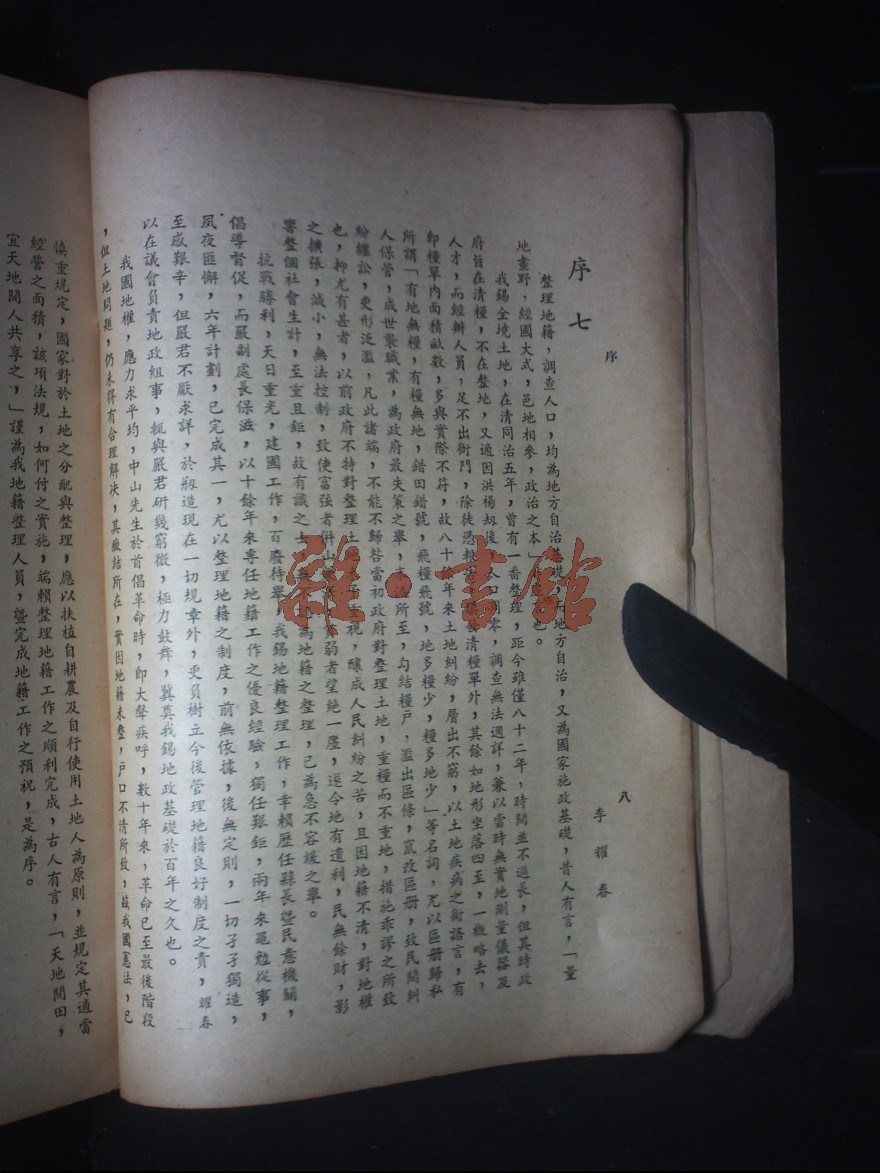 序
八
序七
李耀春
整理地籍，調查人口，均為地方自治基礎，而地方自治，又為國家施政基礎，昔人有言，「量
地畫野，經國大式，邑地相參，政治之本」也。
我錫全境土地，在清同治五年，曾有一番整理，距今雖僅八十二年，時間並不過長，但其時政
府旨在清糧，不在整地，又適因洪楊刼後，人口凋零，調查無法週詳，兼以當時無實地測量儀器及
人才，而經辦人員，足不出衙門，除徒憑糧清糧單外，其餘如地形坐落四至，一概略去，
即糧單內面積畝數，多與實際不符，故八十餘年來土地糾紛，層出不窮，以土地疾病之術語言，有
所謂「有地無糧，有糧無地，錯田錯號，飛糧飛號，地多糧少，糧多地少」等名詞，尤以區册歸私
人保管，成世襲職業，為政府最失策之舉，所至，勾結糧戶，濫出區條，竄改區册，致民間糾
紛纏訟，更形泛濫，凡此諸端，不能不歸咎當初政府對整理土地，重糧而不重地，措施乖謬之所致
也，抑尤有甚者，以前政府不特對整理土視，釀成人民糾紛之苦，且因地籍不清，對地權
之擴張，減小，無法控制，致使富強者併山弱者望絶一廛，遂令地有遺利，民無餘財，影
響整個社會生計，至重且鉅，故有識之士，為地籍之整理，已為急不容緩之舉。
抗戰勝利，天日重光，建國工作，百廢待舉，我錫地籍整理工作，幸賴歷任縣長曁民意機關，
倡導督促，而嚴副處長保滋，以十餘年來專任地籍工作之優良經驗，獨任艱鉅，兩年來黽勉從事，
夙夜匪懈，六年計劃，已完成其一，尤以整理地籍之制度，前無依據，後無定則，一切孑孑獨造，
至感艱辛，但嚴君不厭求詳，於剏造現在一切規章外，更負樹立今後管理地籍良好制度之責，耀春
以在議會負責地政組事，輒與嚴君研幾窮微，極力鼓舞，冀奠我錫地政基礎於百年之久也。
我國地權，應力求平均，中山先生於首倡革命時，即大聲疾呼，數十年來，革命已至最後階段
，但土地問題，仍未得有合理解决，其癥結所在，實因地籍未整，戶口不清所致，茲我國憲法，已
慎重規定，國家對於土地之分配與整理，應以扶植自耕農及自行使用土地人為原則，並規定其適當
經營之面積，該項法規，如何付之實施，端賴整理地籍工作之順利完成，古人有言，「天地間田，
宜天地間人共享之，」謹為我地籍整理人員，曁完成地籍工作之預祝，是為序。
雜·書館